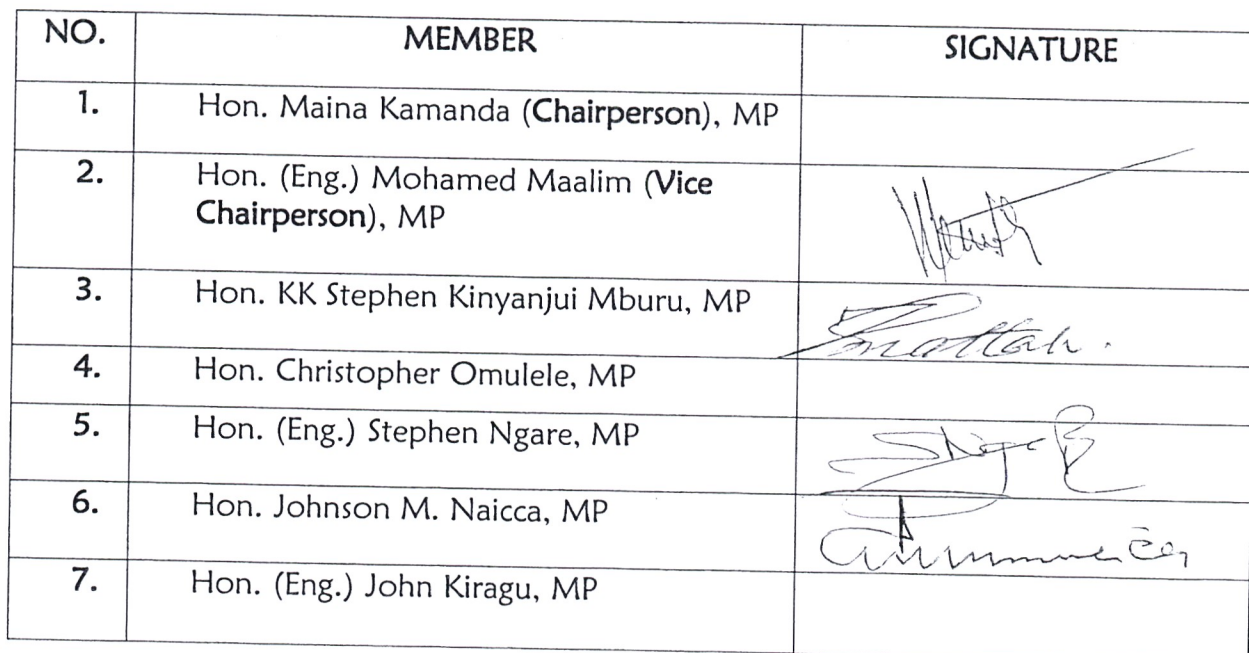 NO. MEMBER SIGNATURE
1. Hon. Maina Kamanda (Chairperson), MP
2. Hon. (Eng.) Mohamed Maalim (Vice
Chairperson), MP
3. Hon. KK Stephen Kinyanjui Mburu, MP
4. Hon. Christopher Omulele, MP
5. Hon. (Eng.) Stephen Ngare, MP
6. Hon. Johnson M. Naicca, MP
7. Hon. (Eng.) John Kiragu, MP